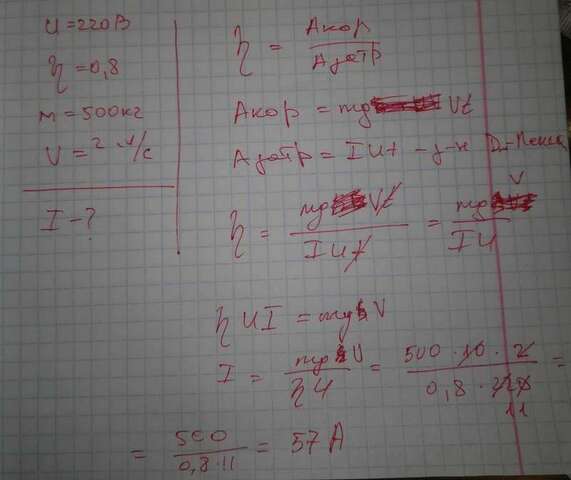 U=220В
η=0,8
m=500кг
V=2 м/с
I-?
η = Акор / Азатр
Акор = mg Vt
Азатр = IUt - з-н Дж-Ленца
η = mg Vt / IUt = mg V / IU
η UI = mg V
I = mg V / ηU = 500 · 10 · 2 / 0,8 · 220 =
11
= 500 / 0,8·11 = 57 А